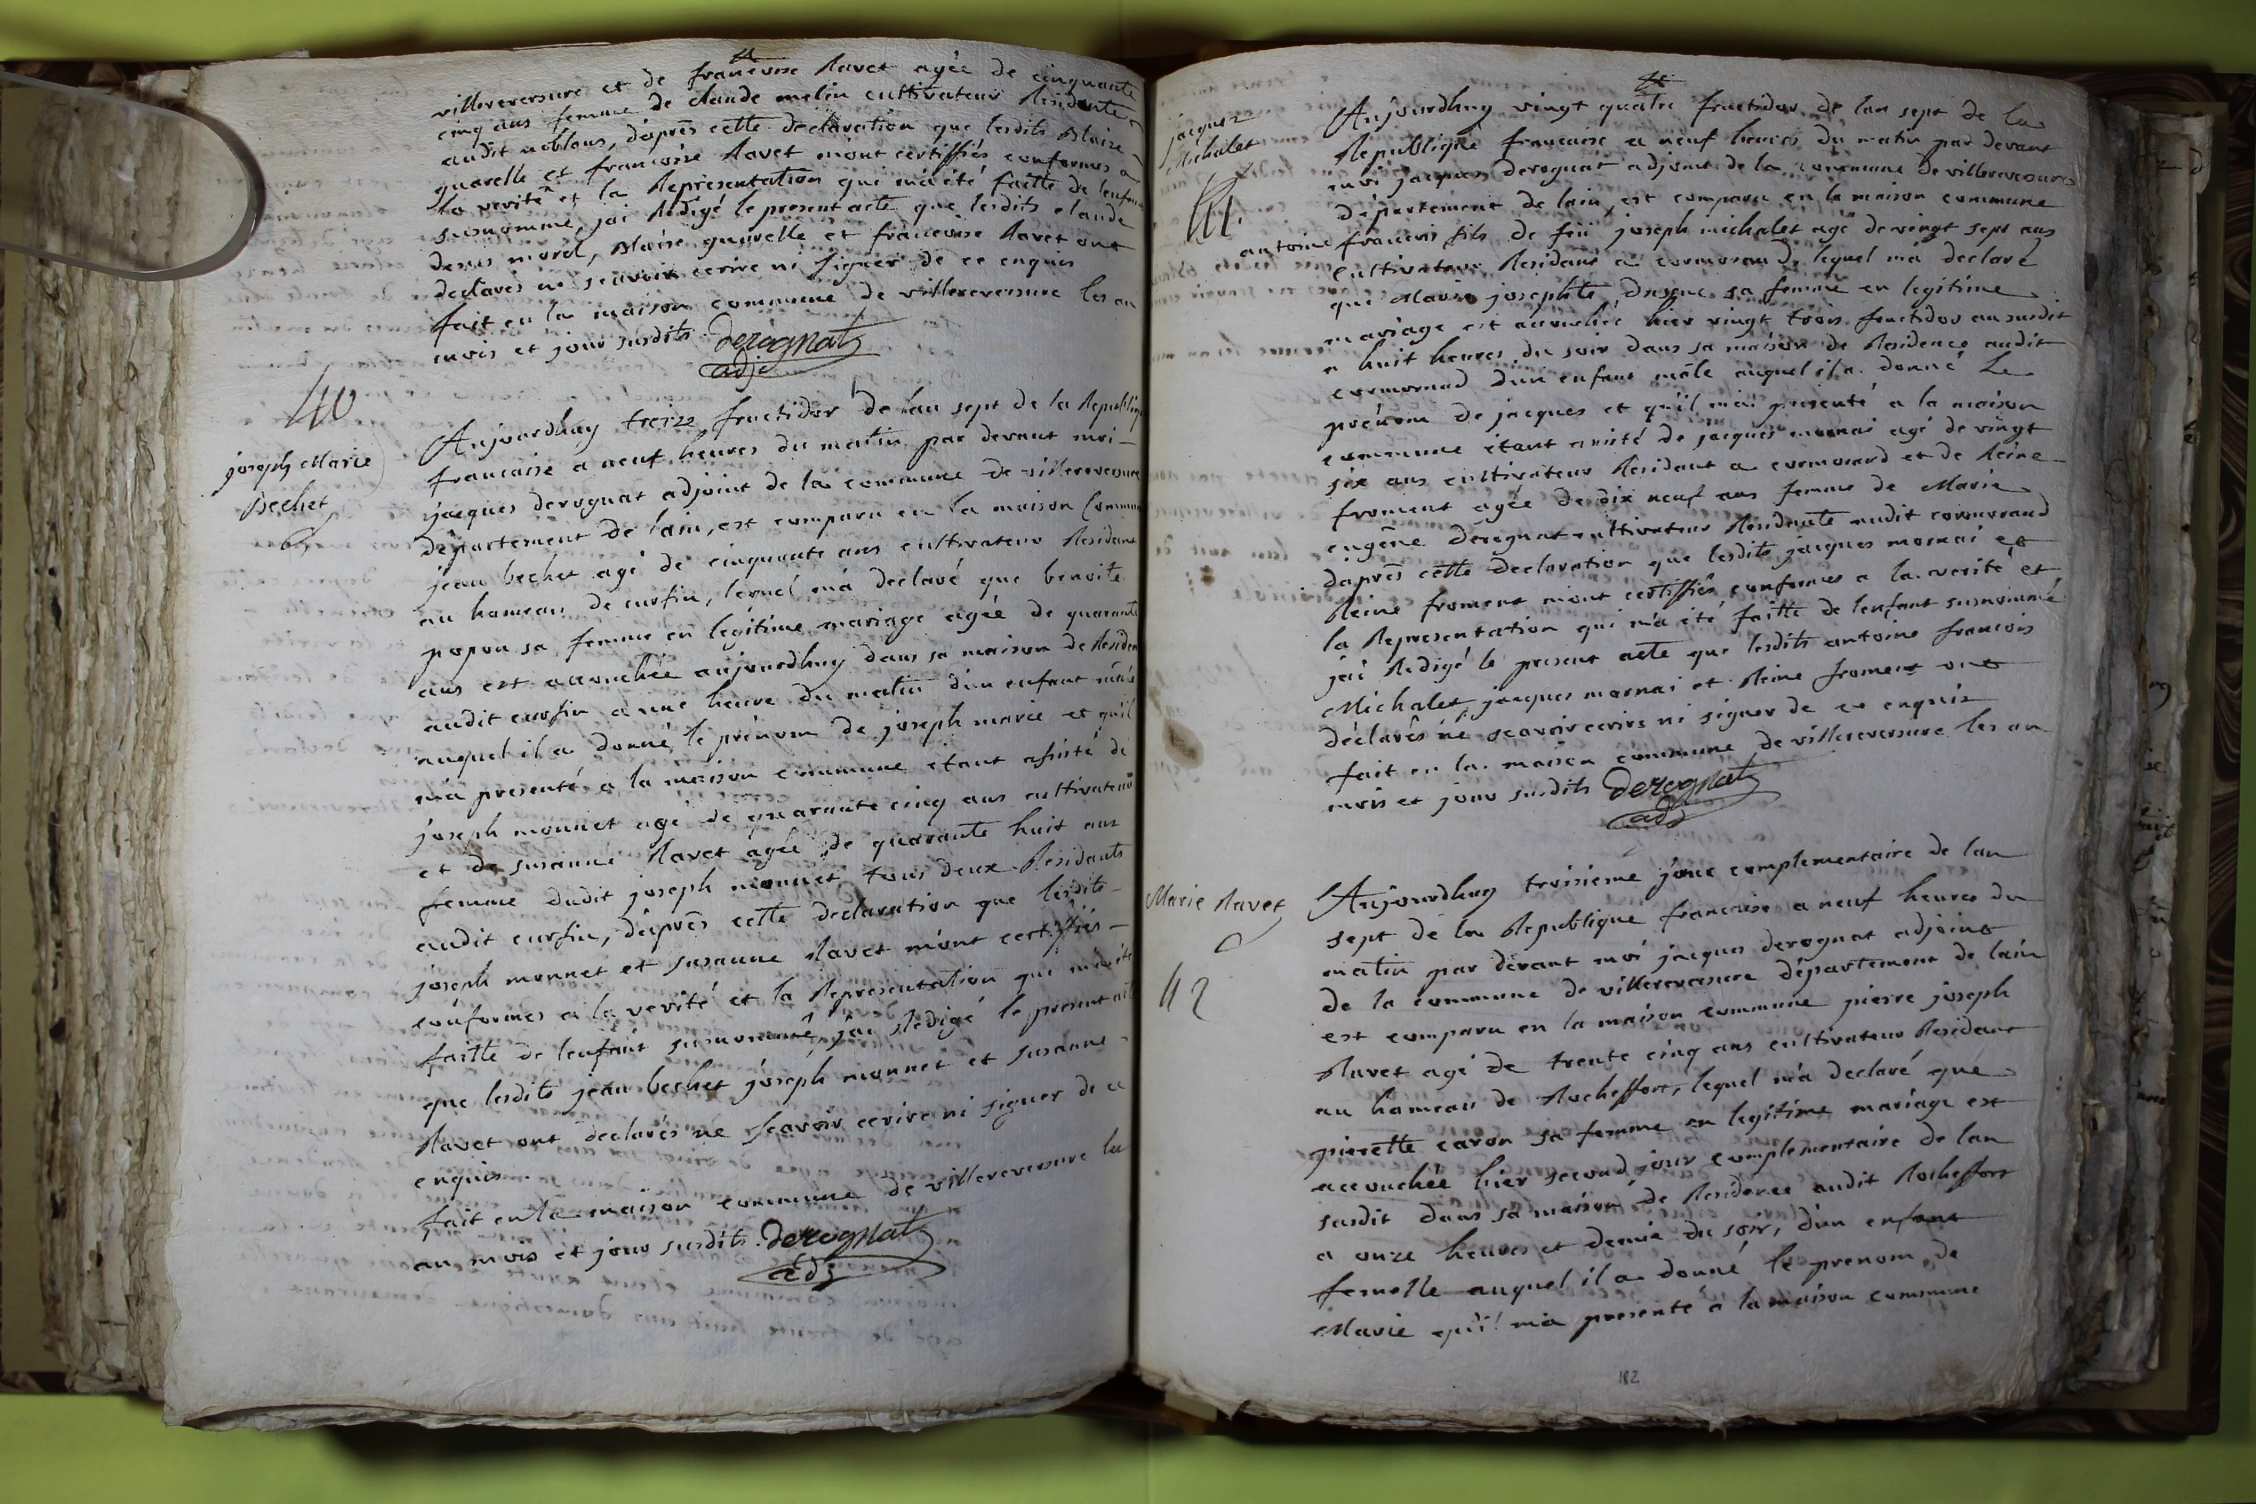 villereversure et de francoise Ravet agée de cinquante
cinq ans femme de claude melin cultivateur Residente
audit noblens, d'après cette declaration que lesdits Blaise
quarelle et francoise Ravet m'ont certiffiés conformes a
la verité et la Représentation qui m'a été faitte de lenfant
susnommé, j'ai Rédigé le present acte que lesdits claude
morel, Blaise quarelle et francoise Ravet ont
declarés ne scavoir ecrire ni signer de ce enquis
fait en la maison commune de villereversure les an
mois et jour susdits derognat
adj.
40
joseph Marie
Bechet
Aujourdhuy treize fructidor de lan sept de la Republique
francaise a neuf heures du matin par devant moi
jacques derognat adjoint de la commune de villereversure
département de lain, est comparu en la maison Commune
jean bechet agé de cinquante ans cultivateur Residant
au hameau de curfin, lequel m'a declaré que benoite
popon sa femme en legitime mariage agée de quarante
ans est accouchée aujourdhuy dans sa maison de Residence
audit curfin a une heure du matin d'un enfant mâle
auquel il a donné le prénom de joseph marie et qu'il
m'a presenté a la maison commune étant assisté de
joseph monnet agé de quarante cinq ans cultivateur
et de susanne Ravet agée de quarante huit ans
femme dudit joseph monnet tous deux Residants
audit curfin, d'après cette declaration que lesdits
joseph monnet et susanne Ravet m'ont certiffiés
conformes a la verité et la Représentation qui m'a été
faitte de lenfant susnommé, j'ai Redigé le present acte
que lesdits jean bechet joseph monnet et susanne
Ravet ont declarés ne scavoir ecrire ni signer de ce
enquis.
fait en la maison commune de villereversure les
an mois et jour susdits. derognat
adj
jacques
Michalet
41.
Aujourdhuy vingt quatre fructidor de lan sept de la
Republique francaise a neuf heures du matin par devant
moi jacques derognat adjoint de la commune de villereversure
département de lain, est comparu en la maison commune
antoine francois fils de feü joseph michalet agé de vingt sept ans
cultivateur Residant a cormorand, lequel m'a declaré
que Marie josephte sa femme en legitime
mariage est accouchée hier vingt trois fructidor an susdit
a huit heures du soir dans sa maison de Residence audit
cormorand d'un enfant mâle auquel il a donné le
prénom de jacques et qu'il m'a presenté a la maison
commune étant assisté de jacques mornai agé de vingt
six ans cultivateur Residant a cormorand et de Reine
froment agée de dix neuf ans femme de Marie
eugêne derognat cultivateur Residente audit cormorand
d'après cette declaration que lesdits jacques mornai et
Reine froment m'ont certiffiés conformes a la verité et
la Représentation qui m'a été faitte de lenfant susnommé
j'ai Redigé le present acte que lesdits antoine francois
Michalet jacques mornai et Reine froment ont
déclarés né scavoir ecrire ni signer de ce enquis
fait en la maison commune de villereversure les an
mois et jour susdits derognat
adj
Marie Ravet
42
Aujourdhuy troisieme jour complementaire de lan
sept de la Republique francaise a neuf heures du
matin par devant moi jacques derognat adjoint
de la commune de villereversure département de lain
est comparu en la maison commune pierre joseph
Ravet agé de trente cinq ans cultivateur Residant
au hameau de Rocheffort, lequel m'a declaré que
pierette caron sa femme en legitime mariage est
accouchée hier second jour complementaire de lan
susdit dans sa maison de Residence audit Rocheffort
a onze heures et demie du soir, d'un enfant
femelle auquel il a donné le prenom de
Marie qu'il m'a presenté a la maison commune
182